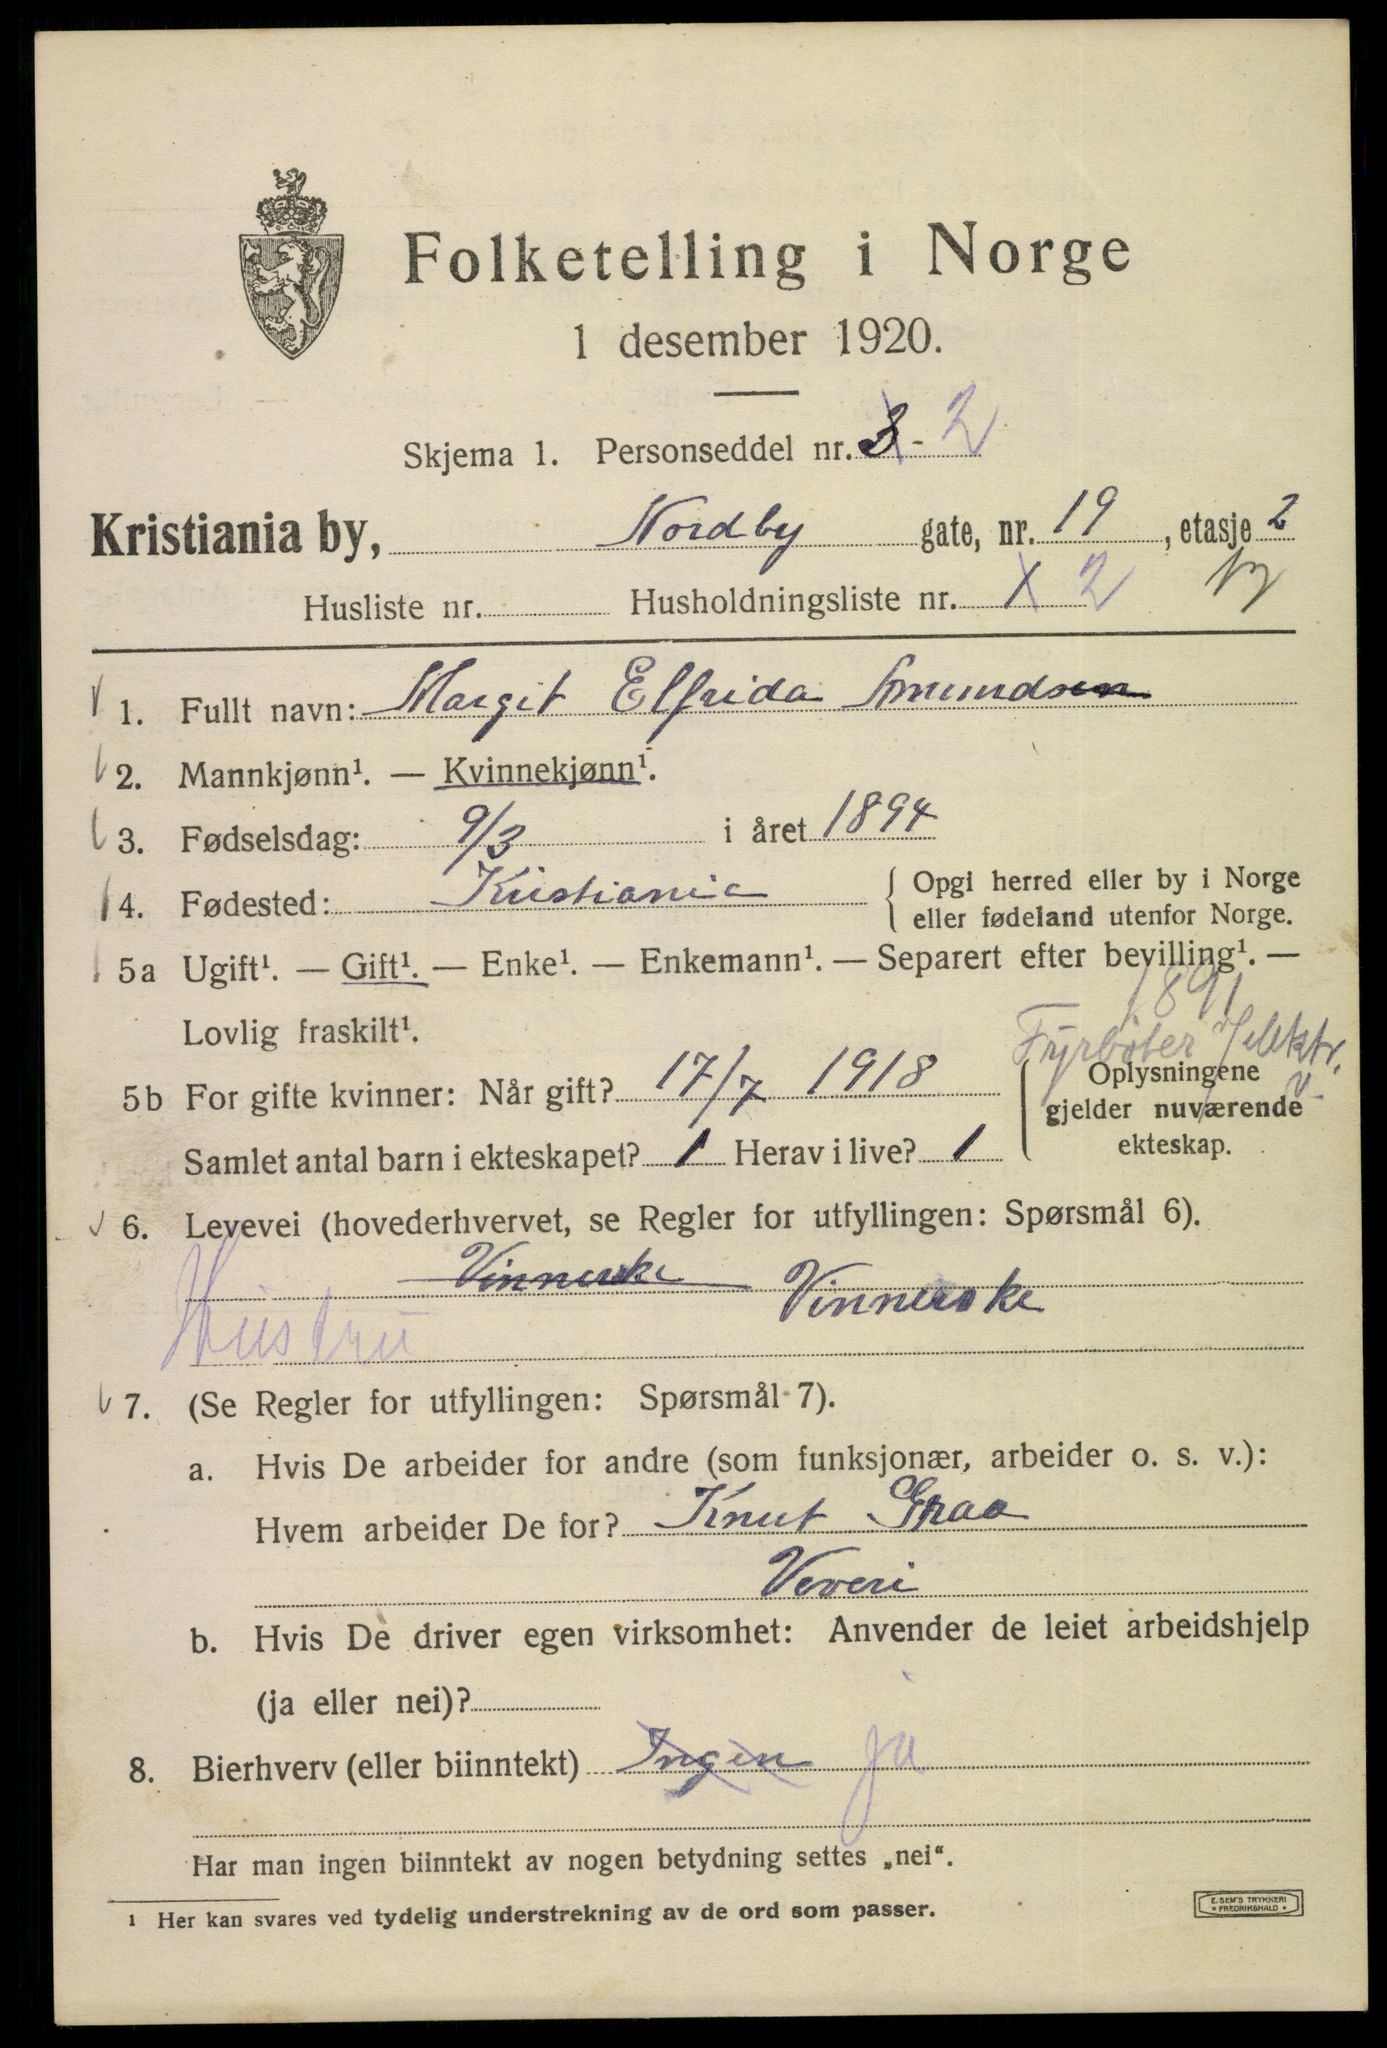 Folketelling i Norge
1 desember 1920.
Skjema 1. Personseddel nr. 3 - 2
Kristiania by, Nordby gate, nr. 19, etasje 2
Husliste nr. Husholdningsliste nr. 1 2
1. Fullt navn: Margit Elfrida Amundsen
2. Mannkjønn¹. — Kvinnekjønn¹.
3. Fødselsdag: 9/3 i året 1894
4. Fødested: Kristiania { Opgi herred eller by i Norge
eller fødeland utenfor Norge.
5a Ugift¹. — Gift¹. — Enke¹. — Enkemann¹. — Separert efter bevilling¹. —
1891
Lovlig fraskilt¹.
Fyrbøter v/elektr.
v.
5b For gifte kvinner: Når gift? 17/7 1918
Oplysningene
gjelder nuværende
ekteskap.
Samlet antal barn i ekteskapet? 1 Herav i live? 1
6. Levevei (hovederhvervet, se Regler for utfyllingen: Spørsmål 6).
Vinnerske Vinnerske
Hustru
7. (Se Regler for utfyllingen: Spørsmål 7).
a. Hvis De arbeider for andre (som funksjonær, arbeider o. s. v.):
Hvem arbeider De for? Knut Graa
Veveri
b. Hvis De driver egen virksomhet: Anvender de leiet arbeidshjelp
(ja eller nei)?
8. Bierhverv (eller biinntekt) Ingen ja
Har man ingen biinntekt av nogen betydning settes „nei“.
¹ Her kan svares ved tydelig understrekning av de ord som passer.
E. SEM'S TRYKKERI
* FREDRIKSHALD *